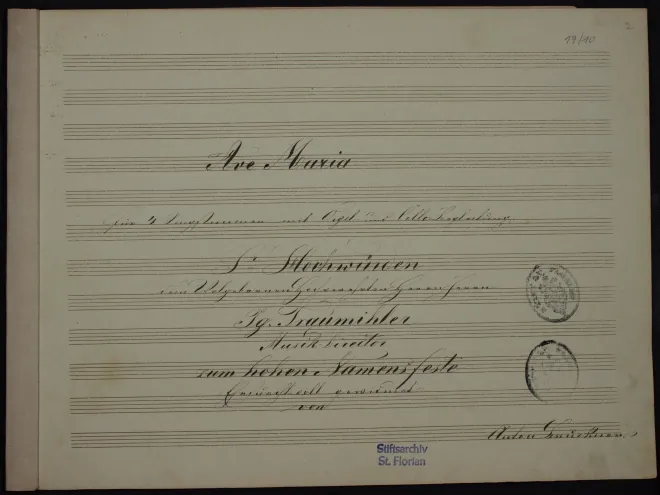 19/10
2
Ave Maria
für 4 Singstimmen mit Orgel und Cello Begleitung
Sr Hochwürden
dem Herrn Herrn
Ig. Traumihler
Musikdirektor
zum hohen Namensfeste
gewidmet
von
Anton Bruckner
Stiftsarchiv
St. Florian